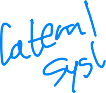 Lateral
Sysl